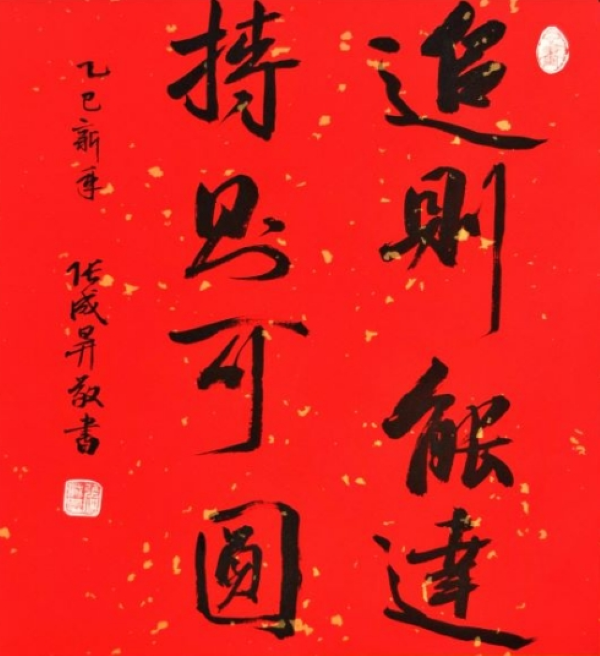 追则能達
持则可圓
乙巳新年 张成昇敬書